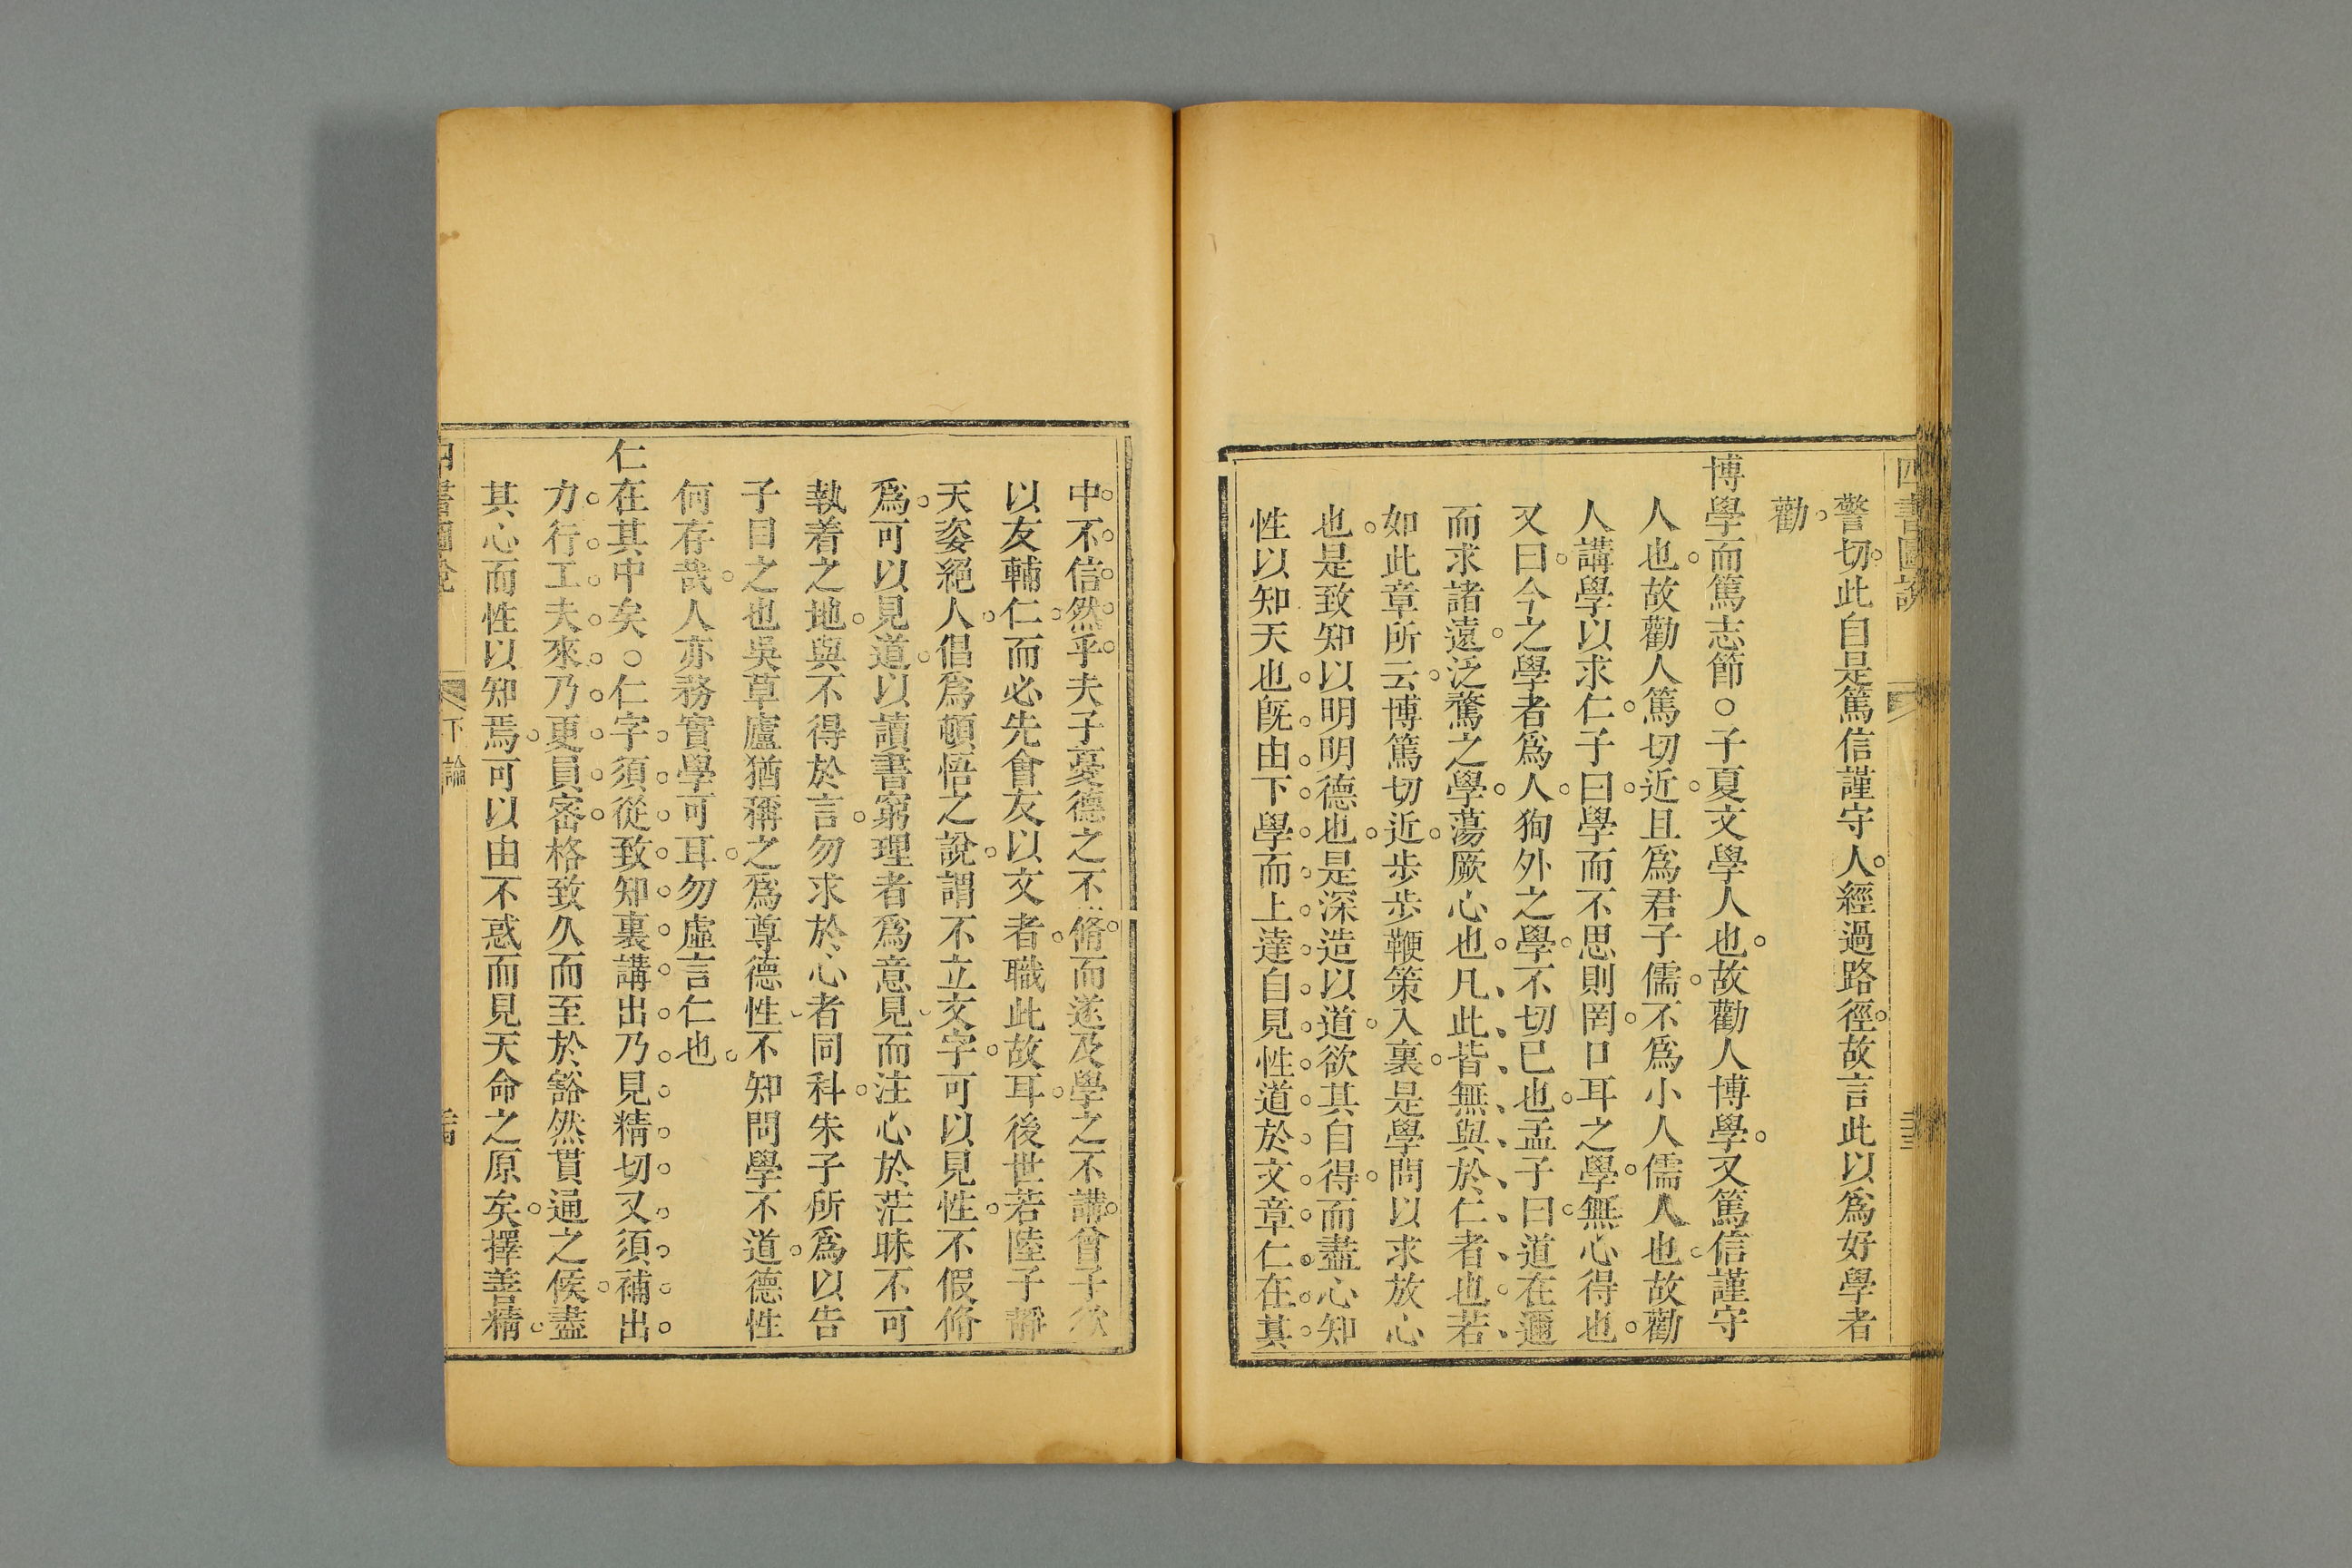 四書圖說
警切此自是篤信謹守人經過路徑故言此以爲好學者
勸
博學而篤志節○子夏文學人也故勸人博學又篤信謹守
人也故勸人篤切近且爲君子儒不爲小人儒人也故勸
人講學以求仁子曰學而不思則罔口耳之學無心得也
又曰今之學者爲人狥外之學不切已也孟子曰道在邇
而求諸遠泛騖之學蕩厥心也凡此皆無與於仁者也若
如此章所云博篤切近步步鞭策入裏是學問以求放心
也是致知以明明德也是深造以道欲其自得而盡心知
性以知天也旣由下學而上達自見性道於文章仁在其
中不信然乎夫子憂德之不脩而遂及學之不講曾子欲
以友輔仁而必先會友以文者職此故耳後世若陸子靜
天姿絕人倡爲頓悟之說謂不立文字可以見性不假脩
爲可以見道以讀書窮理者爲意見而注心於茫昧不可
執着之地與不得於言勿求於心者同科朱子所爲以告
子目之也吳草廬猶稱之爲尊德性不知問學不道德性
何存哉人亦務實學可耳勿虛言仁也
仁在其中矣○仁字須從致知裏講出乃見精切又須補出
力行工夫來乃更員密格致久而至於豁然貫通之候盡
其心而性以知焉可以由不惑而見天命之原矣擇善精
下論